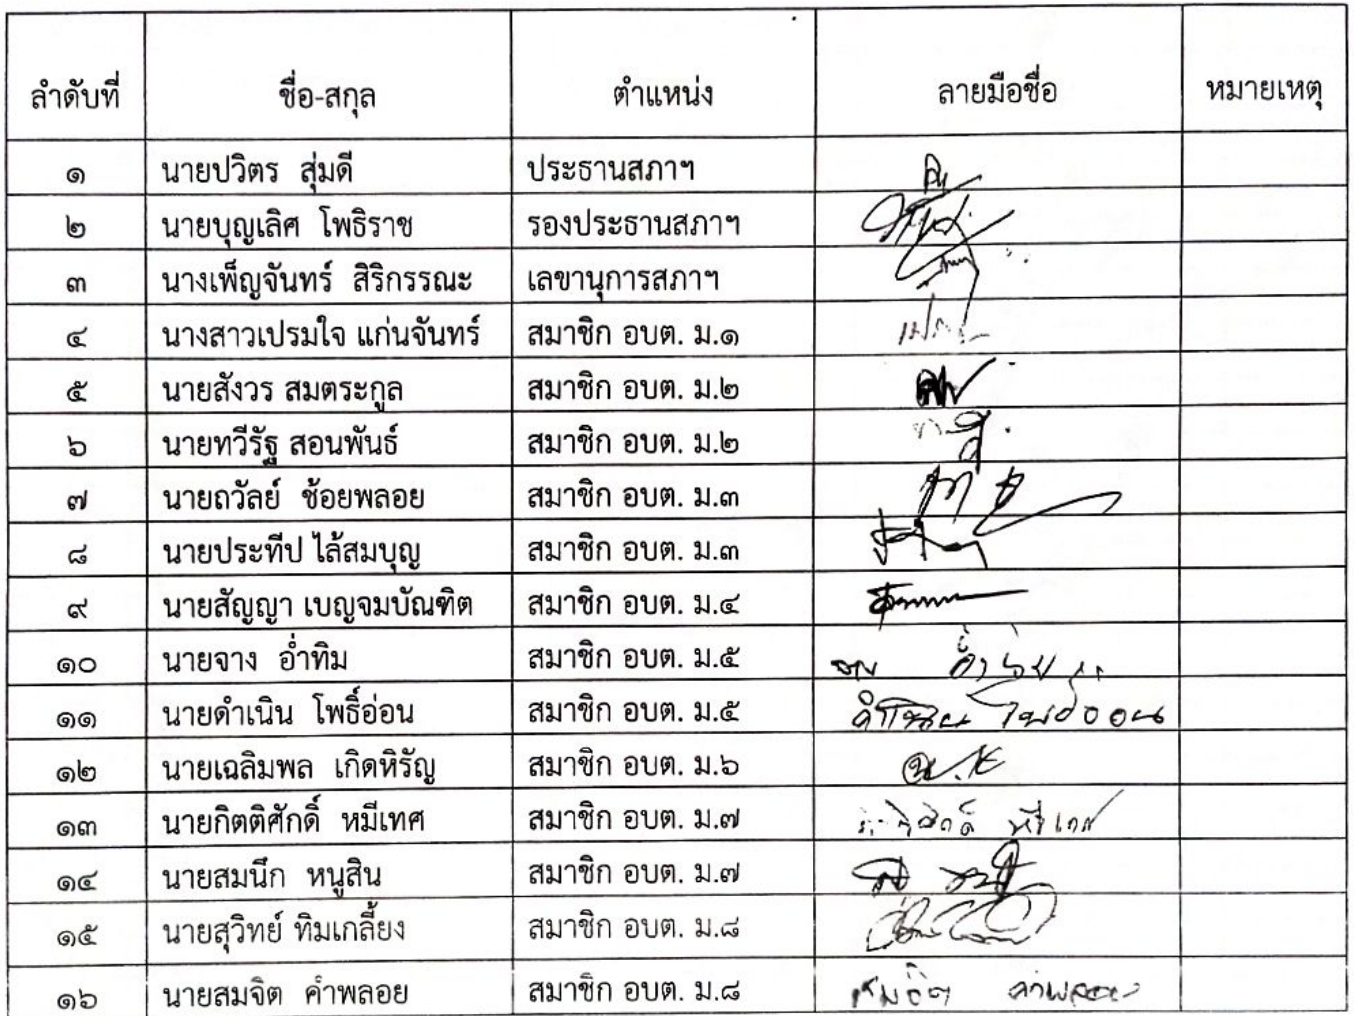 ลำดับที่ ชื่อ-สกุล ตำแหน่ง ลายมือชื่อ หมายเหตุ
๑ นายปวิตร สุ่มดี ประธานสภาฯ
๒ นายบุญเลิศ โพธิราช รองประธานสภาฯ
๓ นางเพ็ญจันทร์ สิริกรรณะ เลขานุการสภาฯ
๔ นางสาวเปรมใจ แก่นจันทร์ สมาชิก อบต. ม.๑
๕ นายสังวร สมตระกูล สมาชิก อบต. ม.๒
๖ นายทวีรัฐ สอนพันธ์ สมาชิก อบต. ม.๒
๗ นายถวัลย์ ช้อยพลอย สมาชิก อบต. ม.๓
๘ นายประทีป ไล้สมบุญ สมาชิก อบต. ม.๓
๙ นายสัญญา เบญจมบัณฑิต สมาชิก อบต. ม.๔
๑๐ นายจาง อ่ำทิม สมาชิก อบต. ม.๕
๑๑ นายดำเนิน โพธิ์อ่อน สมาชิก อบต. ม.๕ ดำเนิน โพธิ์อ่อน
๑๒ นายเฉลิมพล เกิดหิรัญ สมาชิก อบต. ม.๖
๑๓ นายกิตติศักดิ์ หมีเทศ สมาชิก อบต. ม.๗
๑๔ นายสมนึก หนูสิน สมาชิก อบต. ม.๗
๑๕ นายสุวิทย์ ทิมเกลี้ยง สมาชิก อบต. ม.๘
๑๖ นายสมจิต คำพลอย สมาชิก อบต. ม.๘ สมจิต คำพลอย